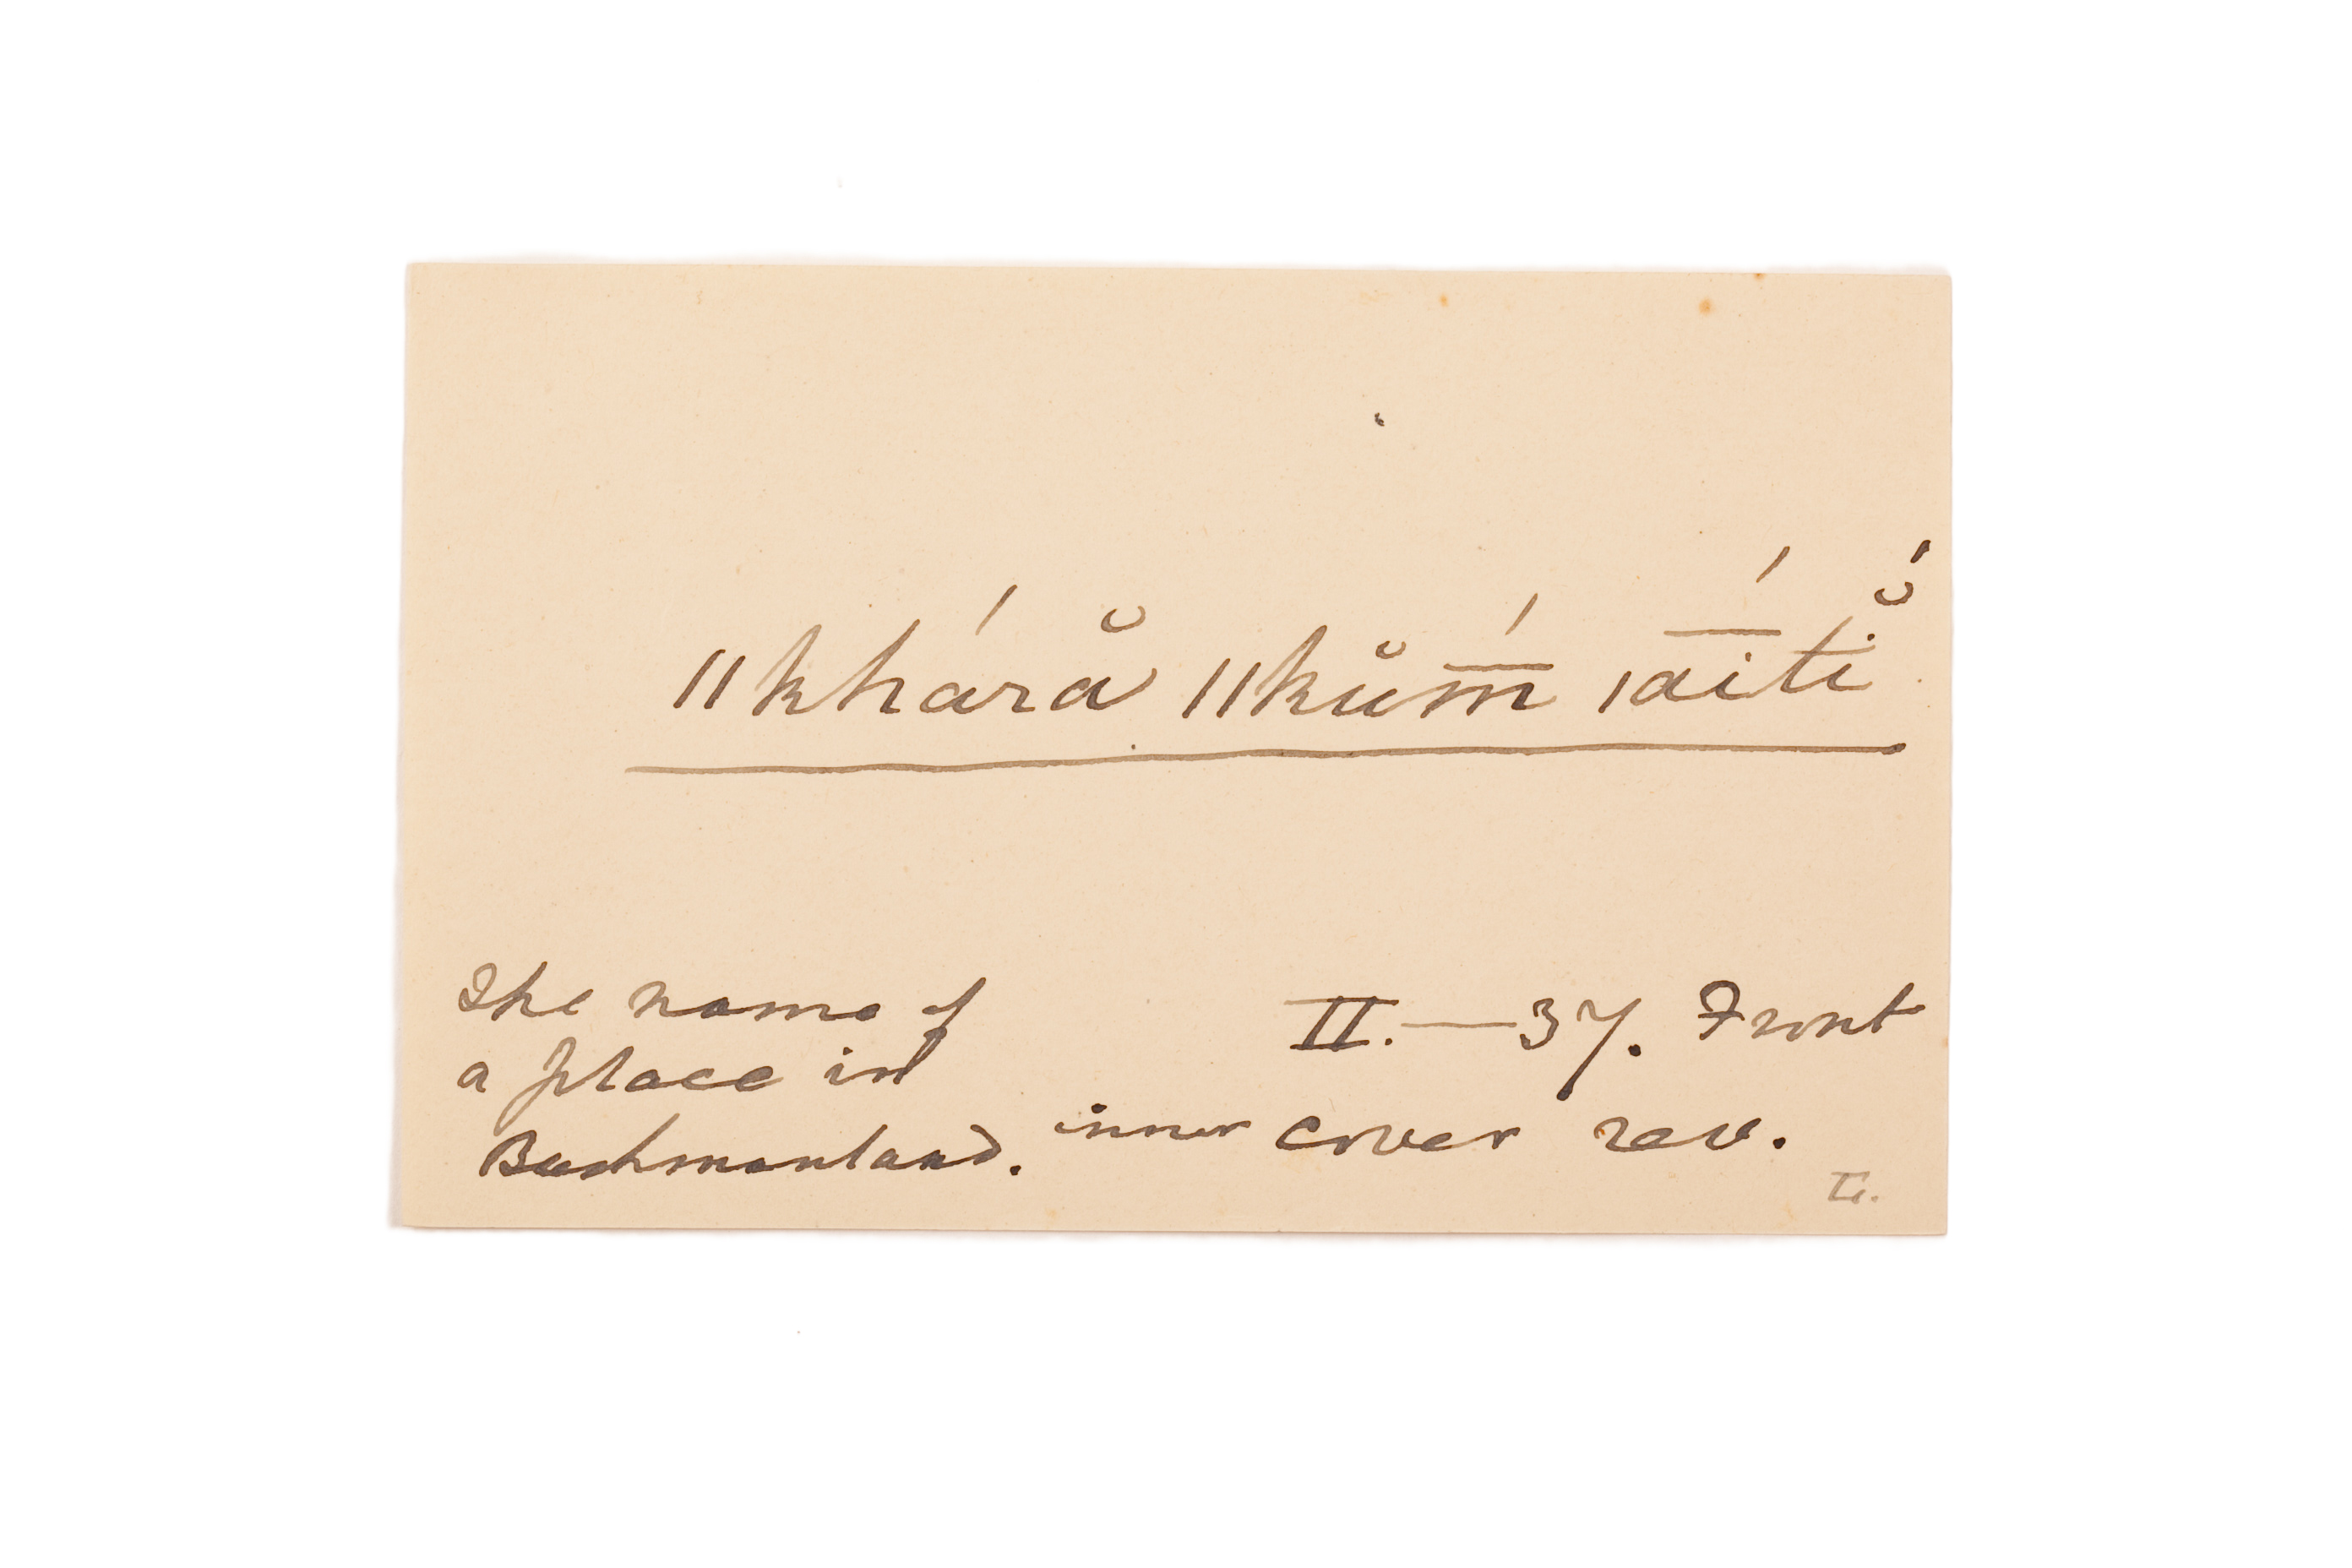 ǁkháră ǁkŭm̄́ ǀā́ítĭ́
The name of
a place in
Bushmanland.
II.—37. Front
inner cover rev.